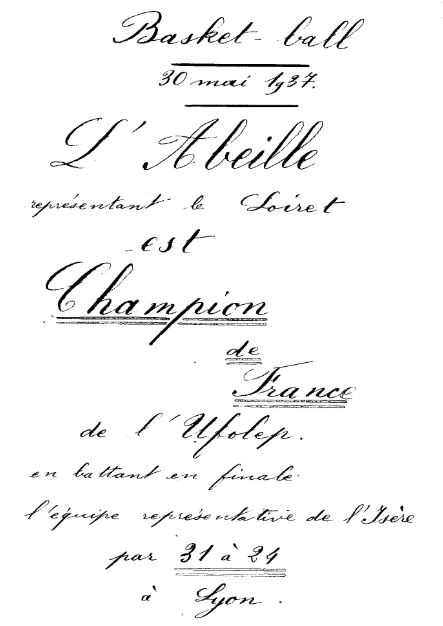 Basket-ball
30 mai 1937.
L'Abeille
représentant le Loiret
est
Champion
de
France
de l'Ufolep.
en battant en finale
l'équipe représentative de l'Isère
par 31 à 24
à Lyon.